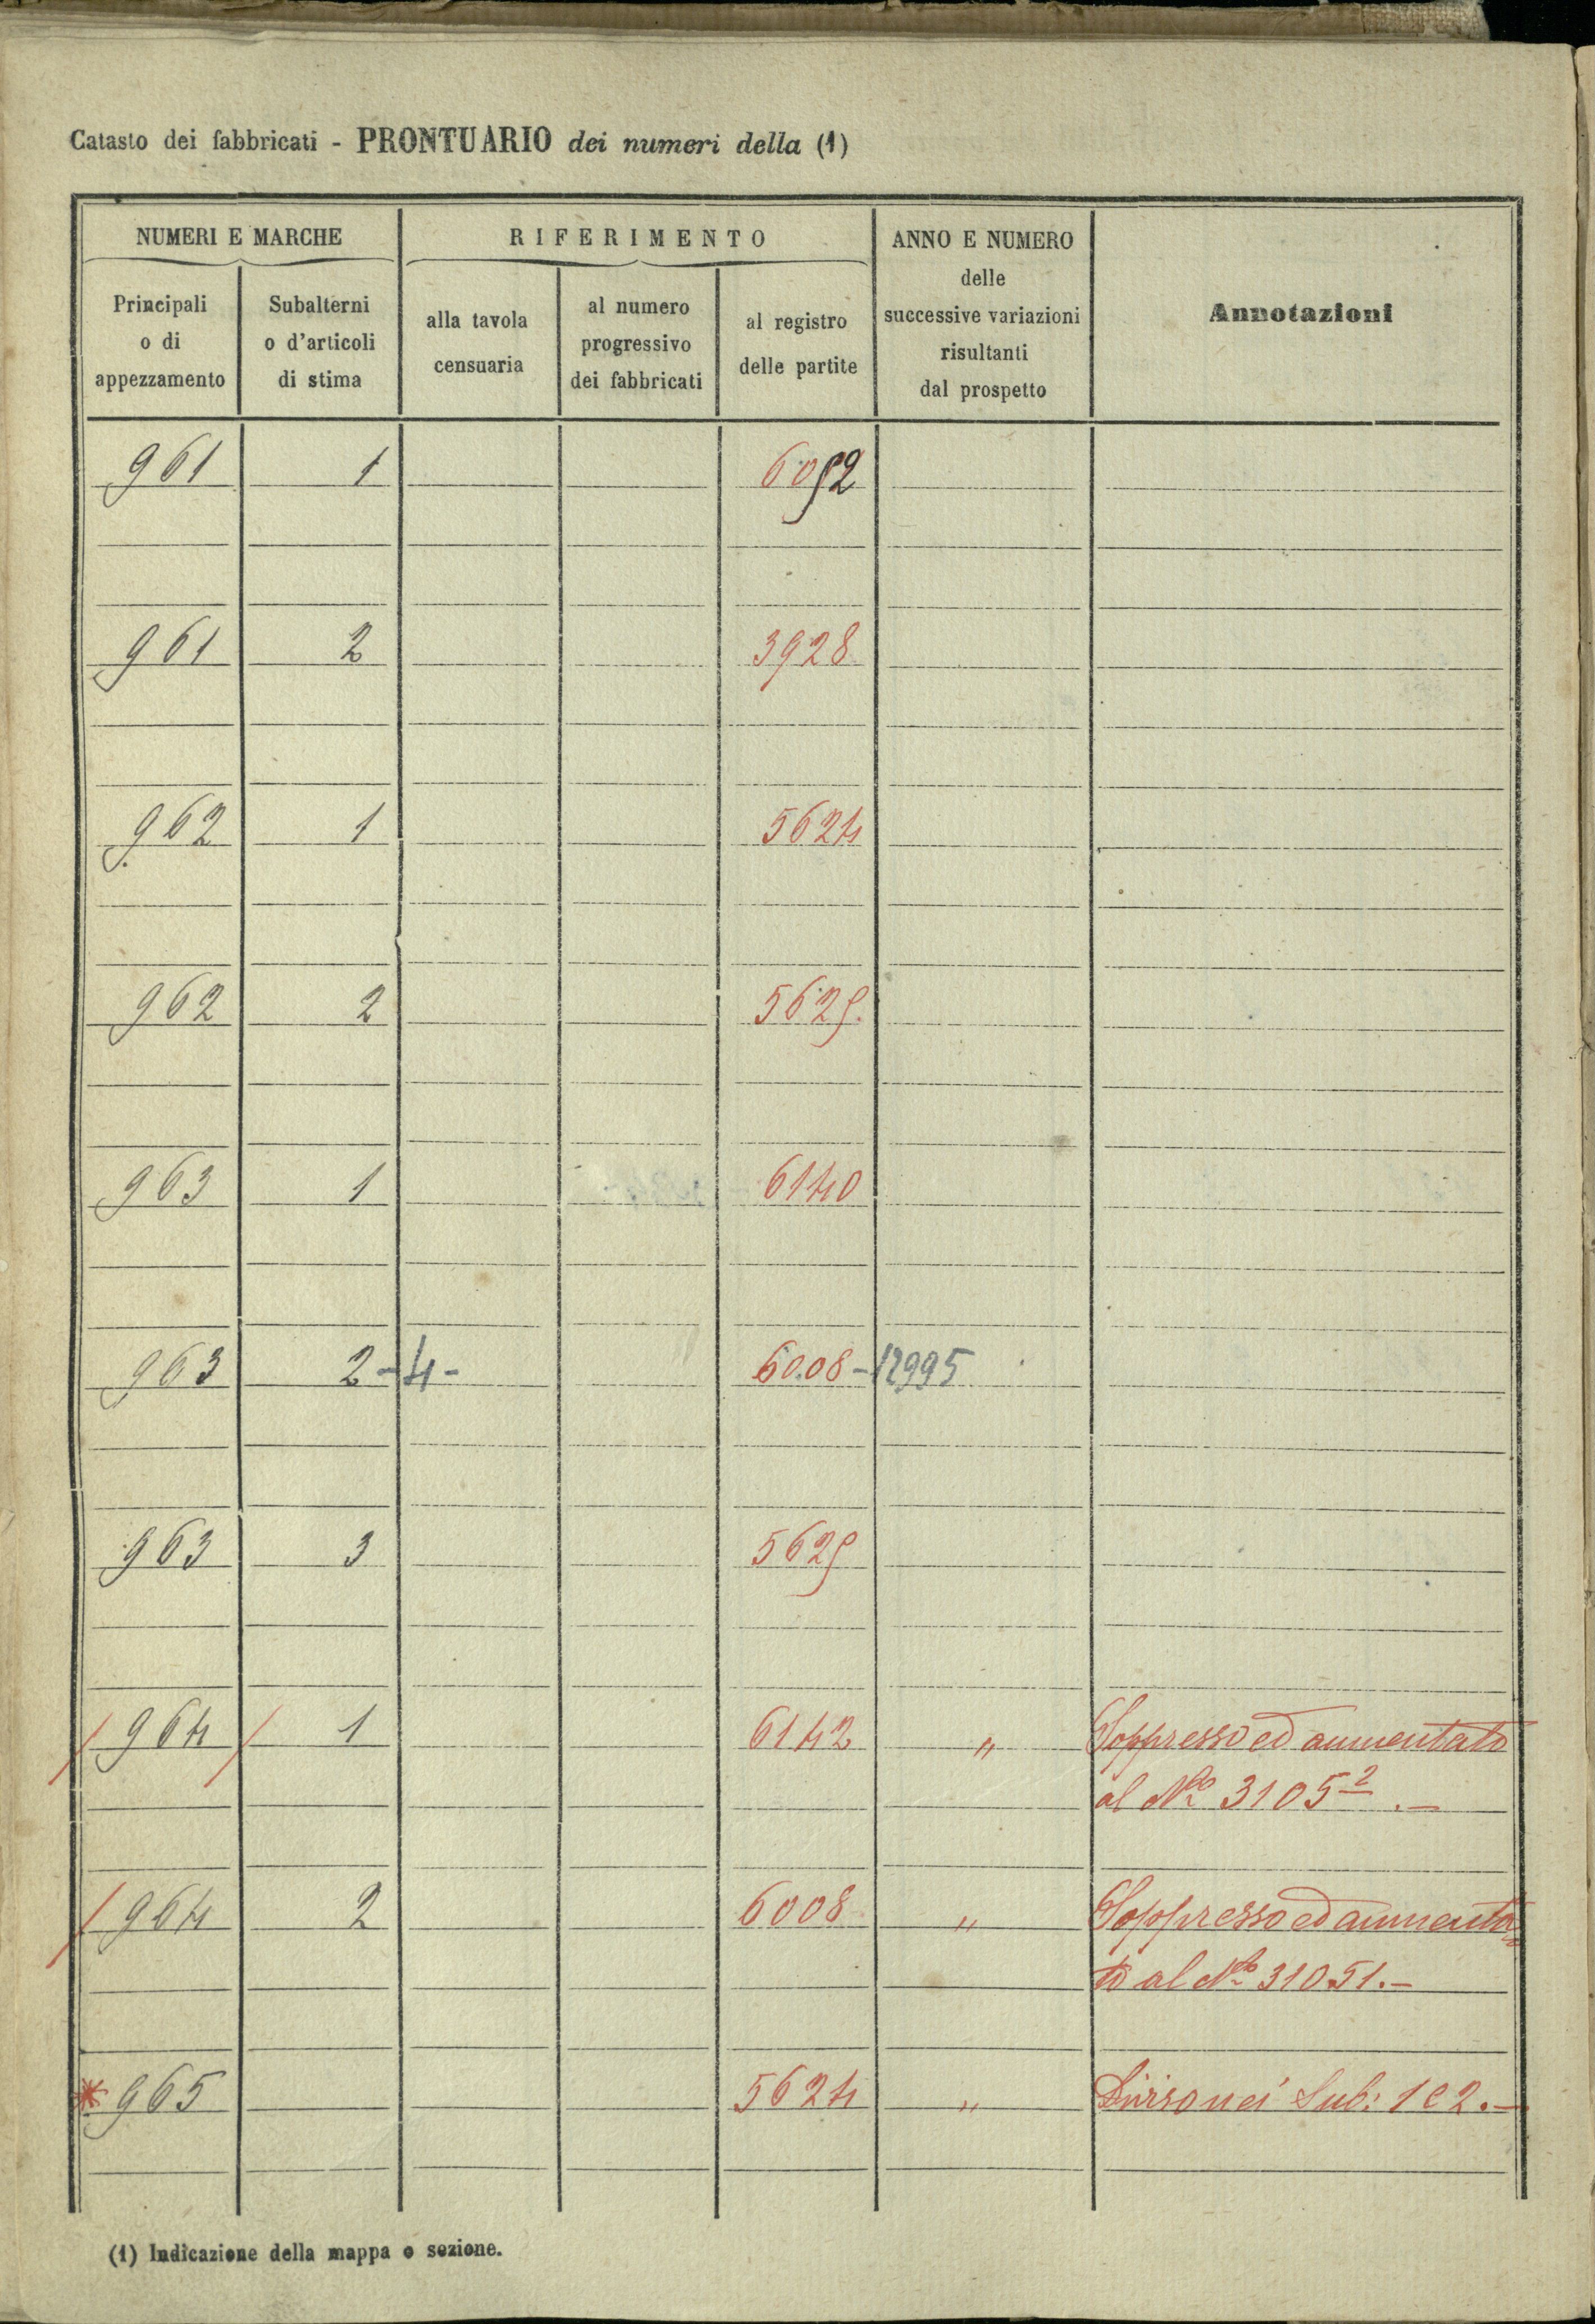 Catasto dei fabbricati - PRONTUARIO dei numeri della (1)
NUMERI E MARCHE
RIFERIMENTO
ANNO E NUMERO
delle
successive variazioni
risultanti
dal prospetto
Annotazioni
Principali
o di
appezzamento
Subalterni
o d'articoli
di stima
alla tavola
censuaria
al numero
progressivo
dei fabbricati
al registro
delle partite
961 1 6052
961 2 3928
962 1 5624
962 2 5625
963 1 6140
963 2-4- 6008-12995
963 3 5625
/ 964 / 1 6142 " Soppresso ed aumentato
al N° 3105².-
/ 964 2 6008 " Soppresso ed aumenta=
to al N° 31051.-
* 965 5624 " Diviso nei Sub: 1 e 2.-
(1) Indicazione della mappa o sezione.